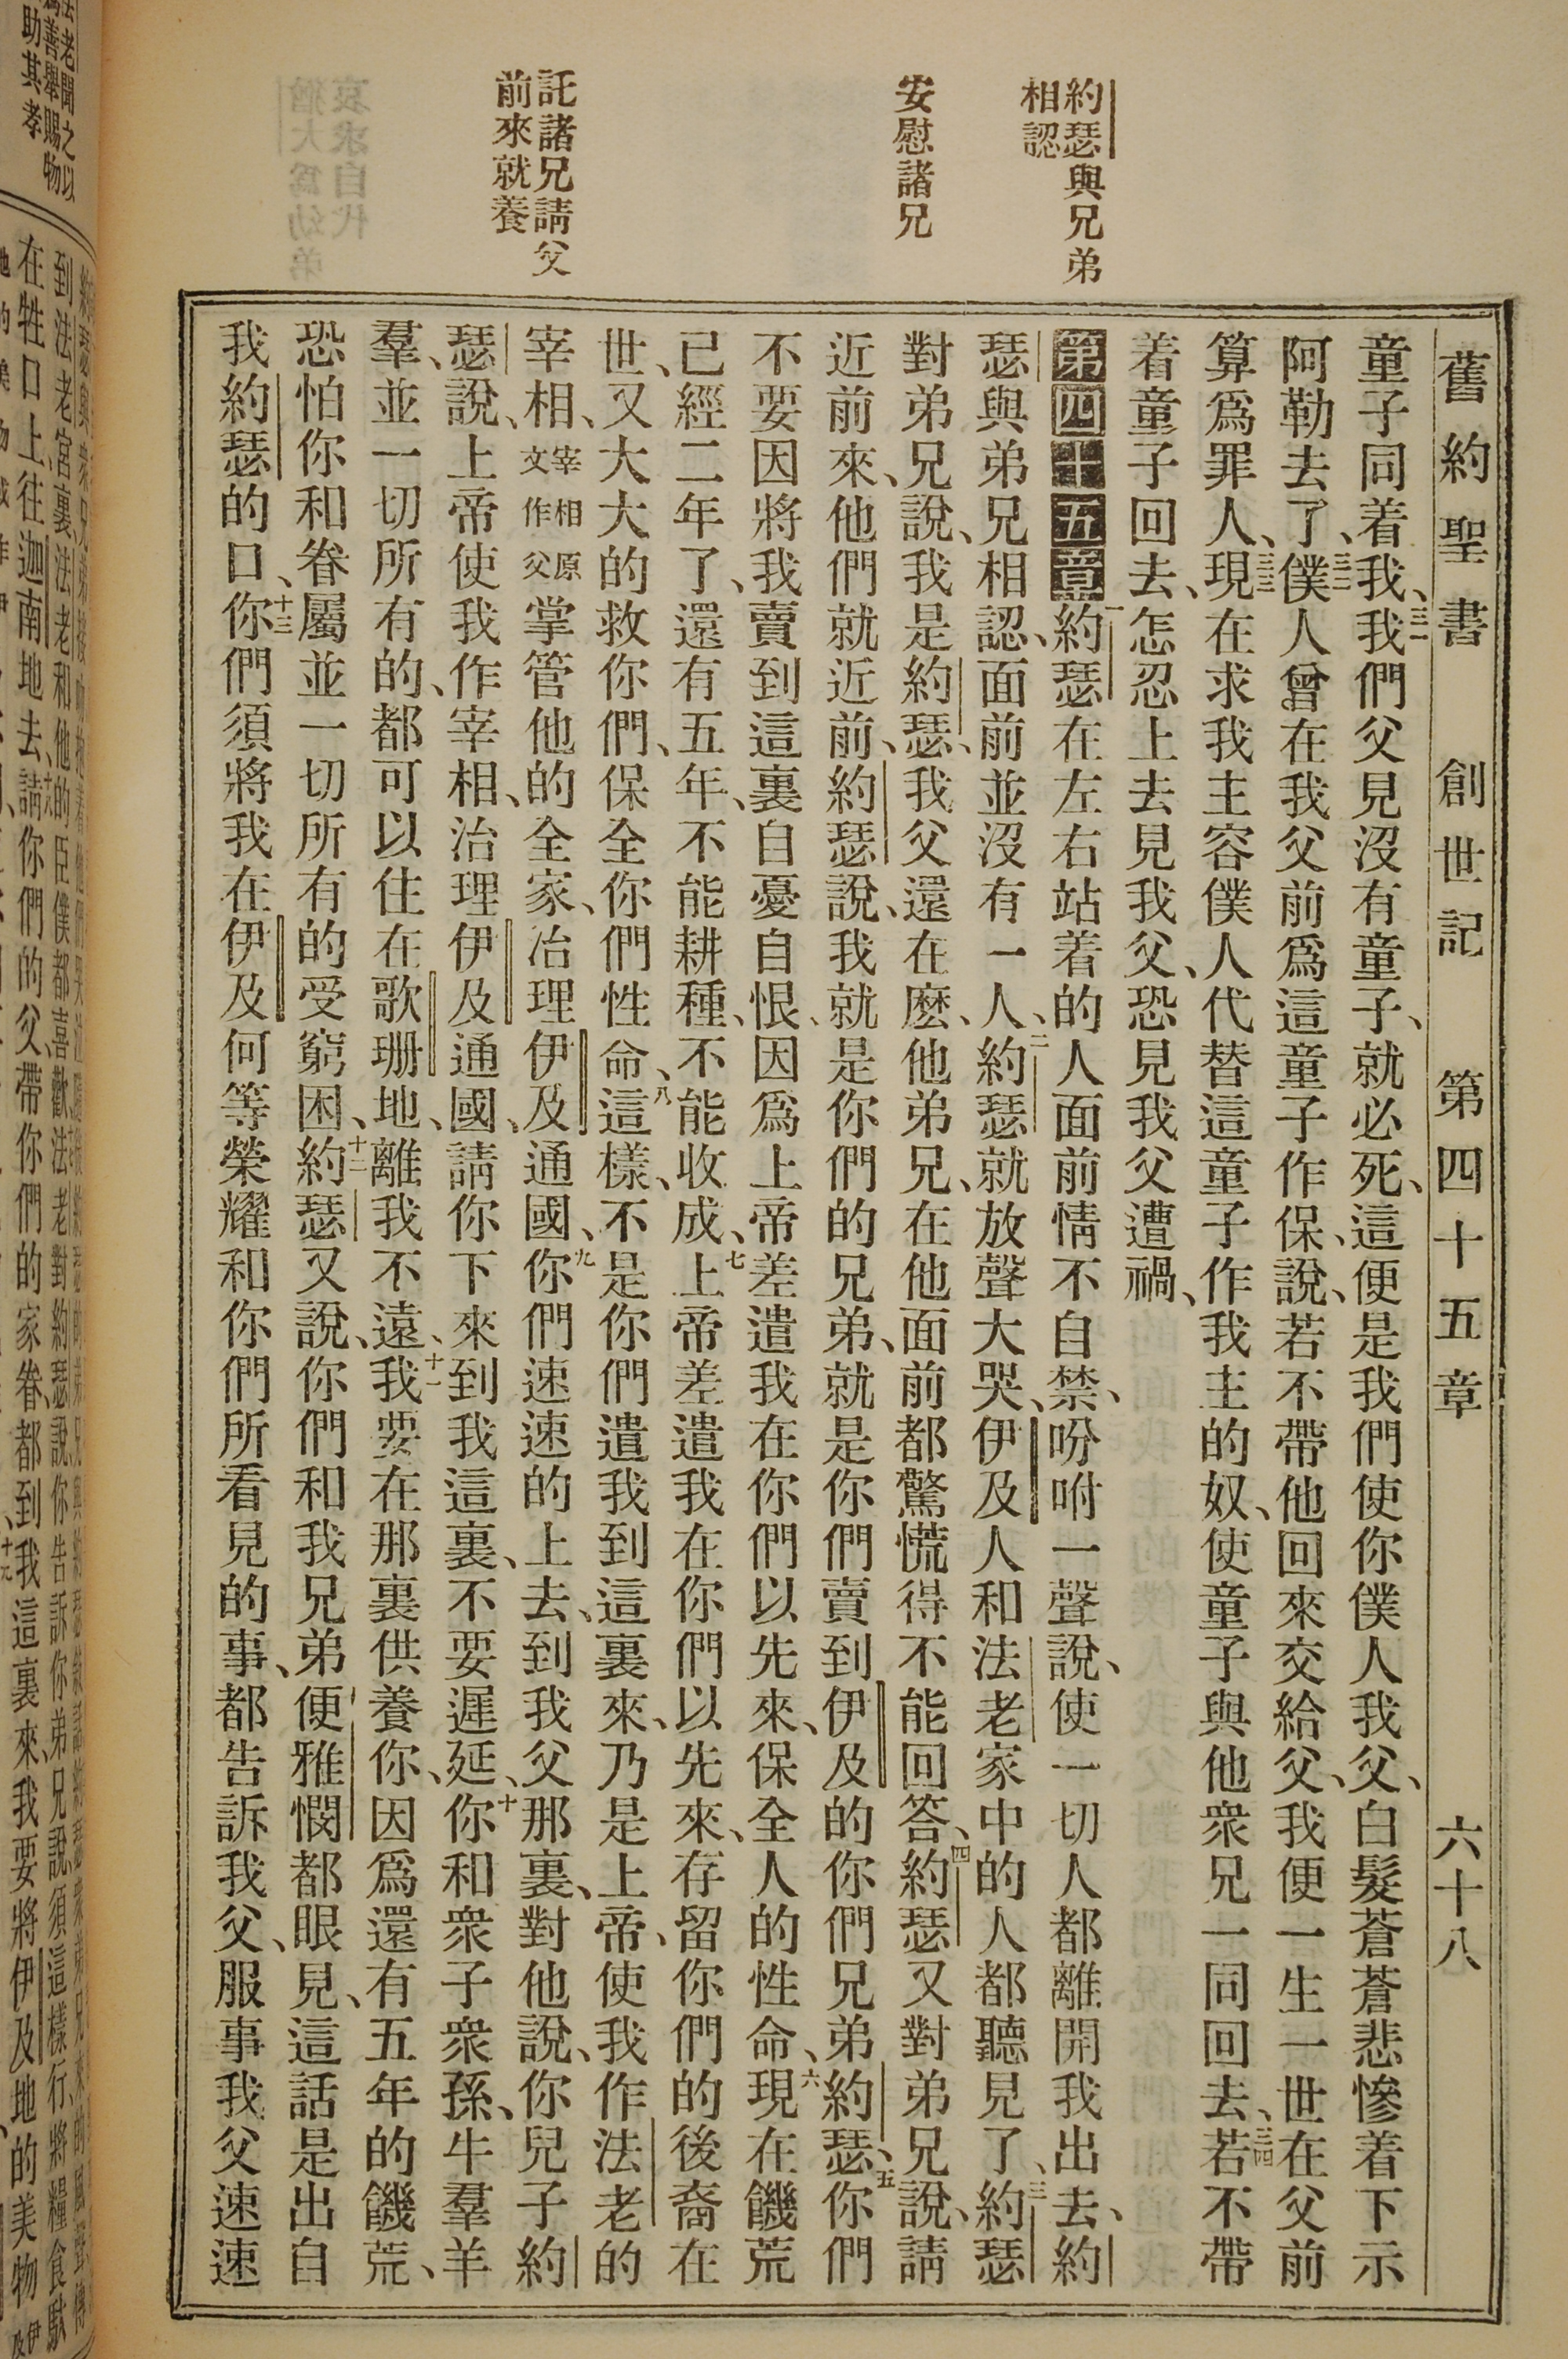 舊約聖書 創世記 第四十五章 六十八
約瑟與兄弟
相認
安慰諸兄
託諸兄請父
前來就養
童子同着我、三一我們父見沒有童子、就必死、這便是我們使你僕人我父、白髮蒼蒼悲慘着下示
阿勒去了、三二僕人曾在我父前爲這童子作保、說、若不帶他回來交給父、我便一生一世在父前
算爲罪人、三三現在求我主容僕人代替這童子作我主的奴、使童子與他衆兄一同回去、三四若不帶
着童子回去、怎忍上去見我父、恐見我父遭禍、
第四十五章一約瑟在左右站着的人面前情不自禁、吩咐一聲說、使一切人都離開我出去、約
瑟與弟兄相認、面前並沒有一人、二約瑟就放聲大哭、伊及人和法老家中的人都聽見了、三約瑟
對弟兄說、我是約瑟、我父還在麼、他弟兄、在他面前都驚慌得不能回答、四約瑟又對弟兄說、請
近前來、他們就近前、約瑟說、我就是你們的兄弟、就是你們賣到伊及的你們兄弟約瑟、五你們
不要因將我賣到這裏自憂自恨、因爲上帝差遣我在你們以先來、保全人的性命、六現在饑荒
已經二年了、還有五年、不能耕種、不能收成、七上帝差遣我在你們以先來、存留你們的後裔在
世、又大大的救你們、保全你們性命、八這樣、不是你們遣我到這裏來、乃是上帝、使我作法老的
宰相、宰相原文作父掌管他的全家、冶理伊及通國、九你們速速的上去、到我父那裏、對他說、你兒子約
瑟說、上帝使我作宰相、治理伊及通國、請你下來到我這裏、不要遲延、十你和衆子衆孫、牛羣羊
羣、並一切所有的、都可以住在歌珊地、離我不遠、十一我要在那裏供養你、因爲還有五年的饑荒、
恐怕你和眷屬並一切所有的受窮困、十二約瑟又說、你們和我兄弟便雅憫都眼見、這話是出自
我約瑟的口、十三你們須將我在伊及何等榮耀和你們所看見的事、都告訴我父、服事我父速速